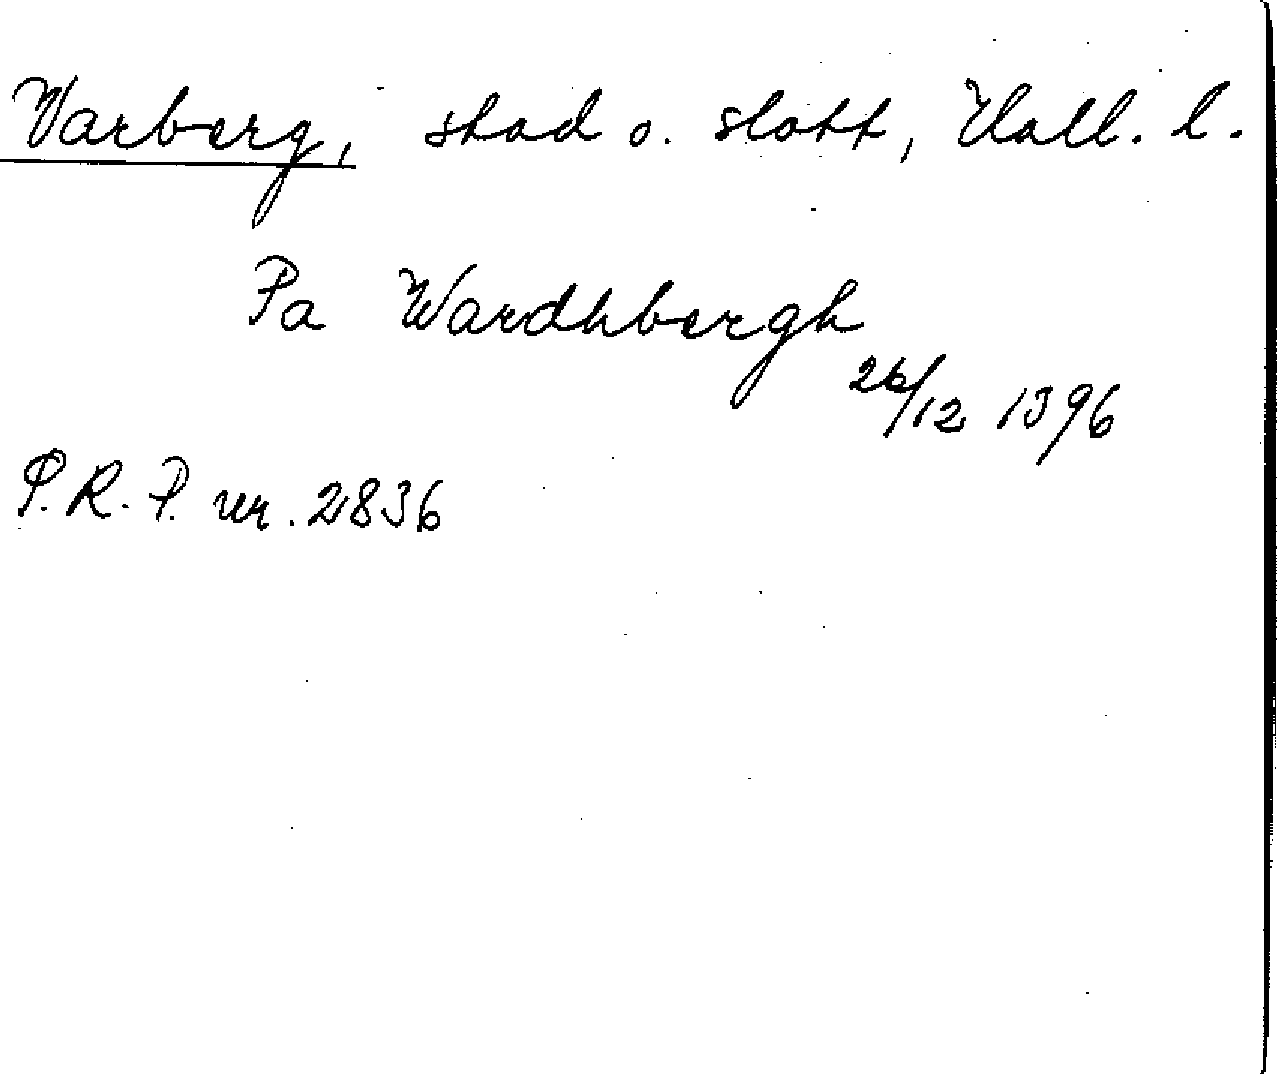 Varberg, stad o. slott, Hall. l.
Pa Wardhbergh
26/12 1396
P.R.P. nr. 2836